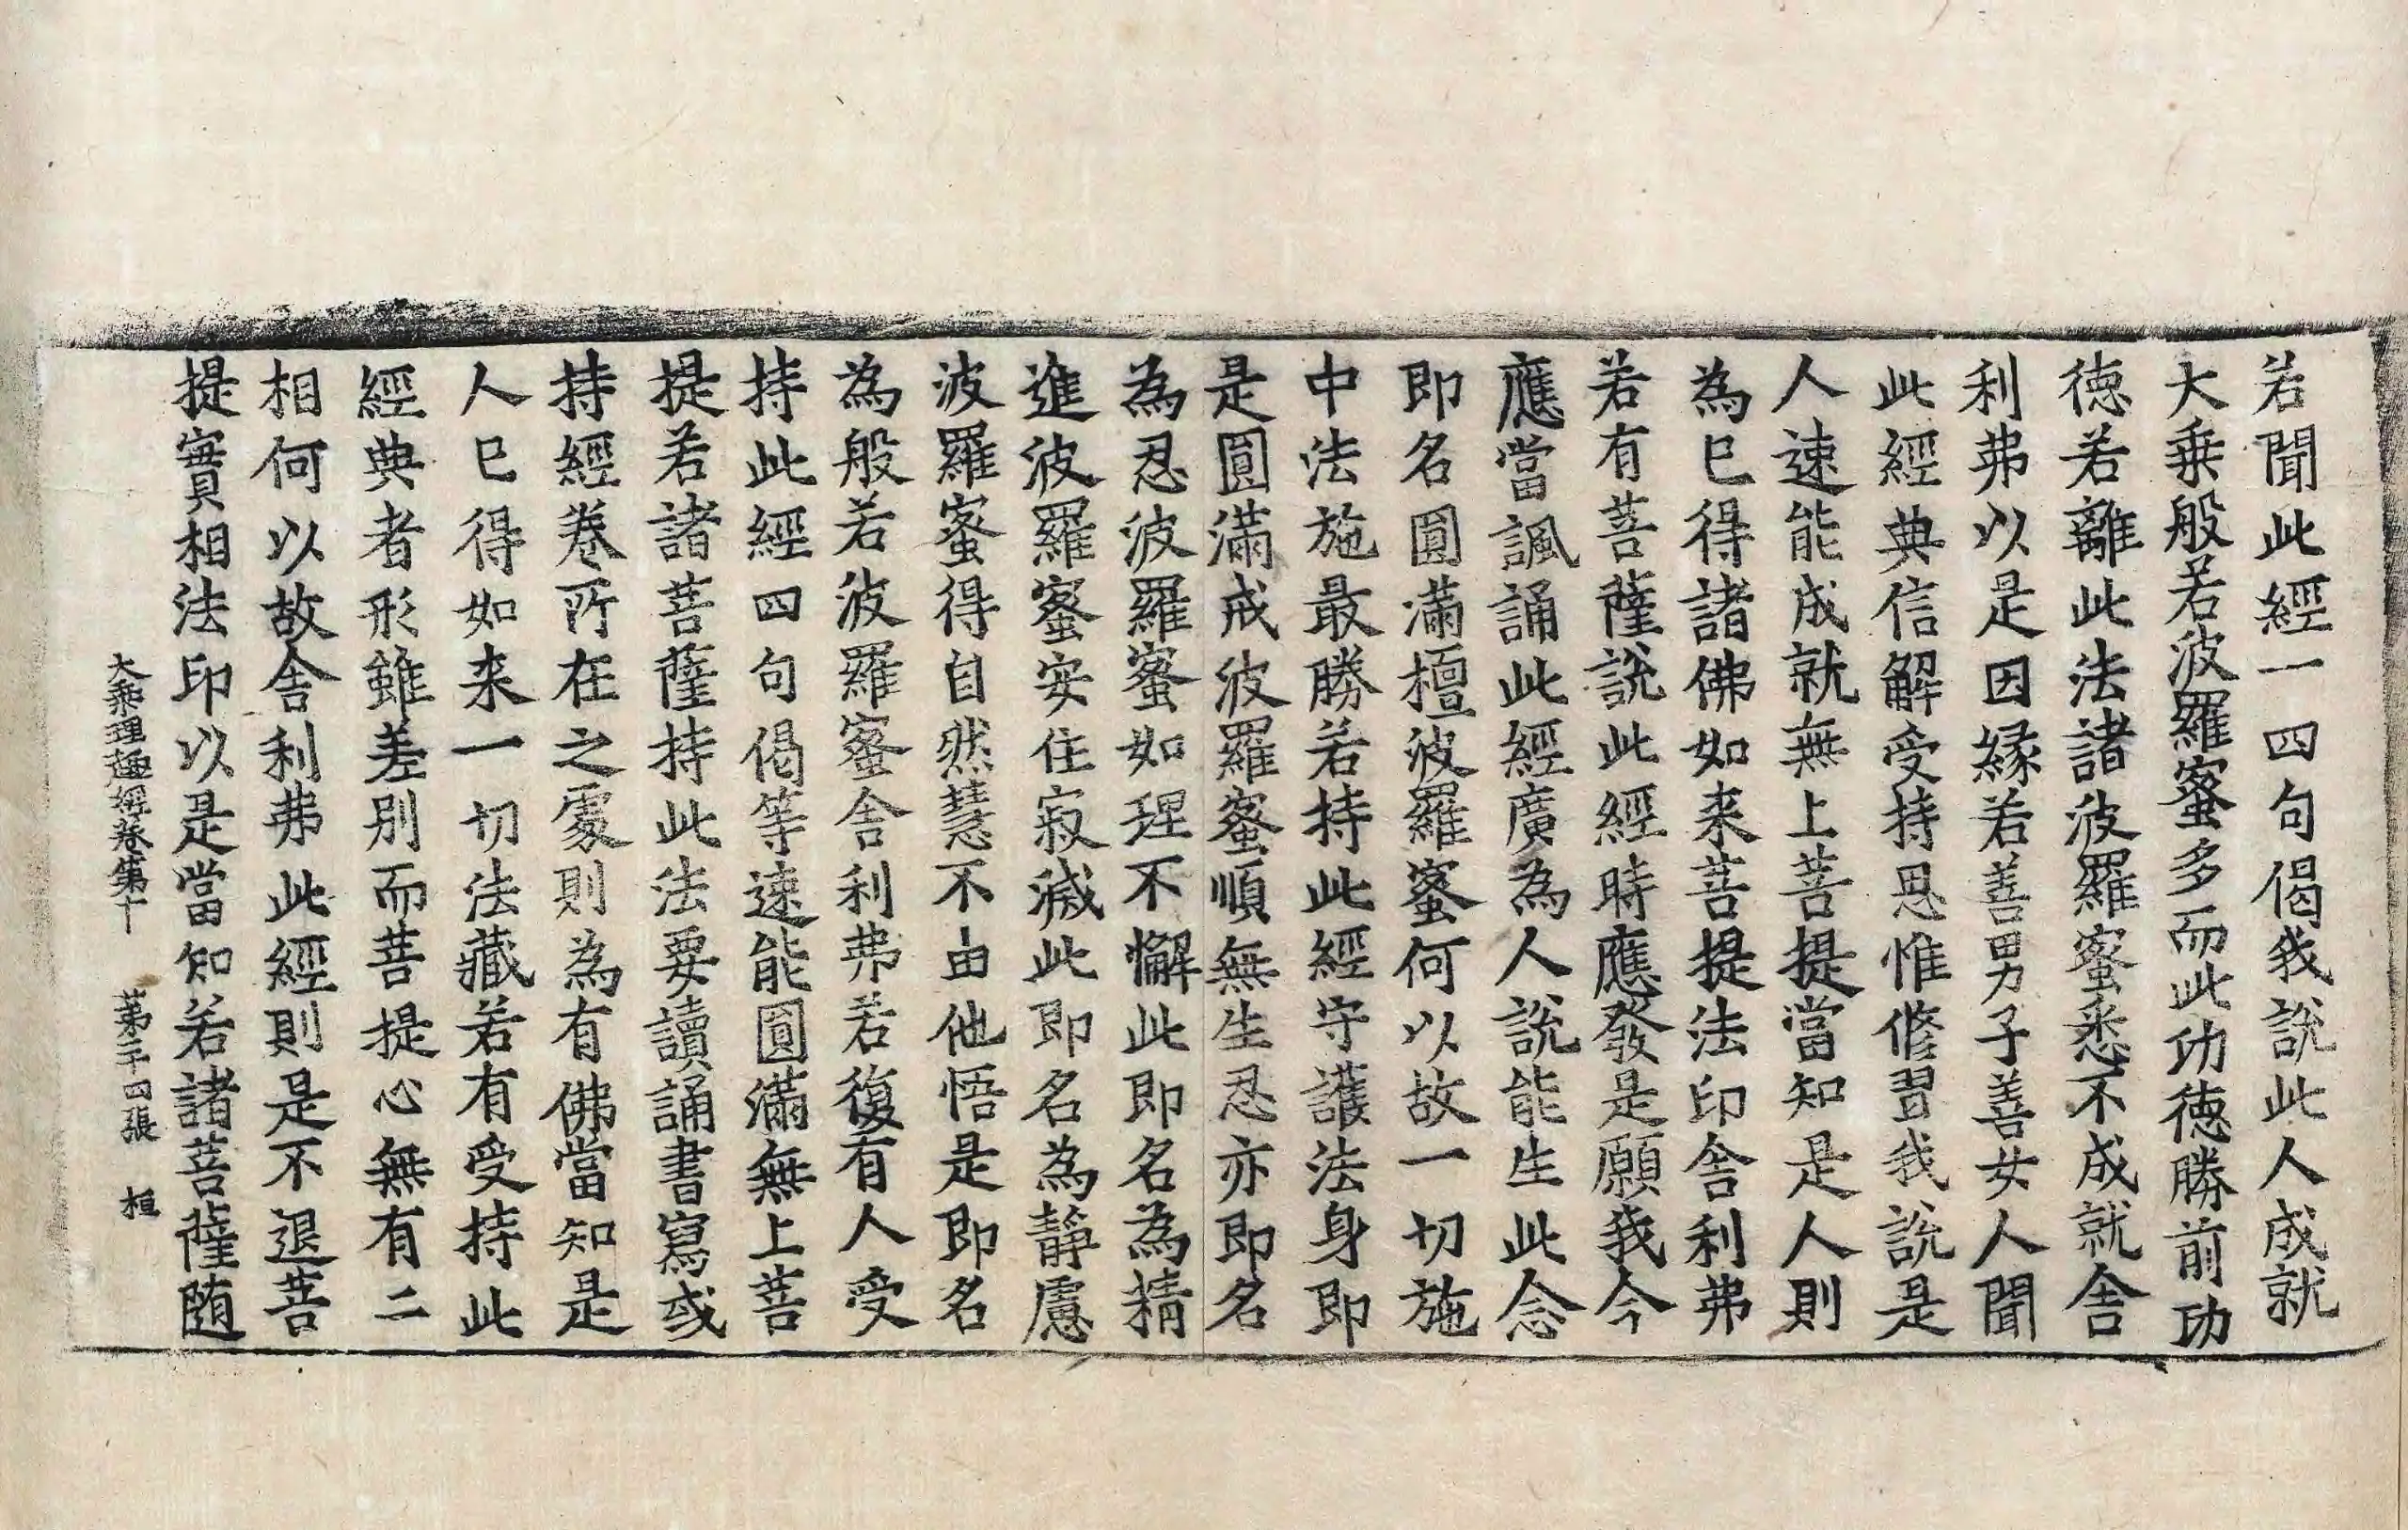 若聞此經一四句偈我說此人成就
大乗般若波羅蜜多而此功德勝前功
德若離此法諸波羅蜜悉不成就舎
利弗以是因緣若善男子善女人聞
此經典信解受持思惟修習我說是
人速能成就無上菩提當知是人則
為巳得諸佛如来菩提法印舎利弗
若有菩薩說此經時應發是願我今
應當諷誦此經廣為人說能生此念
即名圓滿檀波羅蜜何以故一切施
中法施最勝若持此經守護法身即
是圓滿戒波羅蜜順無生忍亦即名
為忍波羅蜜如理不懈此即名為精
進波羅蜜安住寂滅此即名為靜慮
波羅蜜得自然慧不由他悟是即名
為般若波羅蜜舎利弗若復有人受
持此經四句偈等速能圓滿無上菩
提若諸菩薩持此法要讀誦書寫或
持經卷所在之處則為有佛當知是
人巳得如来一切法藏若有受持此
經典者形雖差別而菩提心無有二
相何以故舎利弗此經則是不退菩
提實相法印以是當知若諸菩薩随
大乘理趣經卷第十 第二十四張 桓